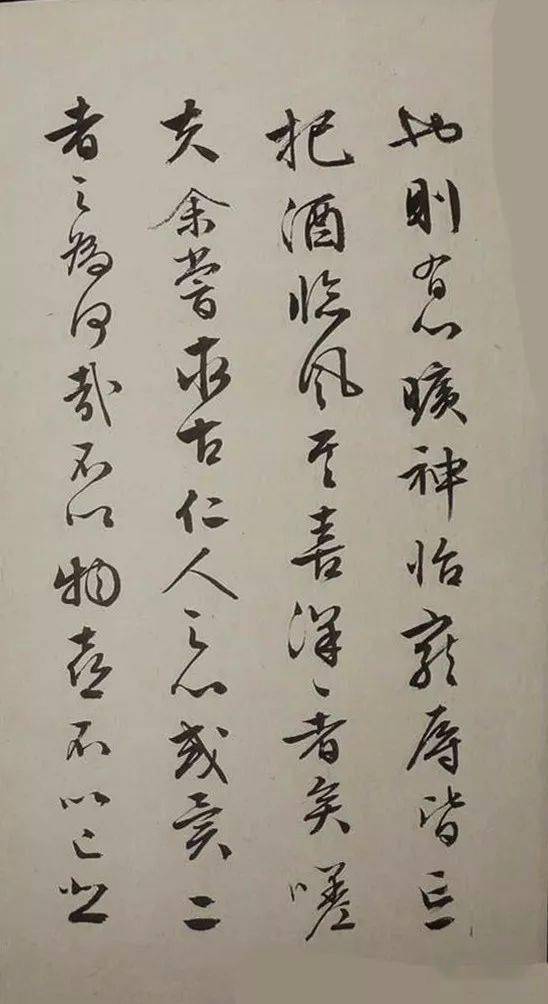 也則有心曠神怡寵辱皆忘
把酒臨風其喜洋〻者矣嗟
夫余嘗求古仁人之心或異二
者之為何哉不以物喜不以己悲